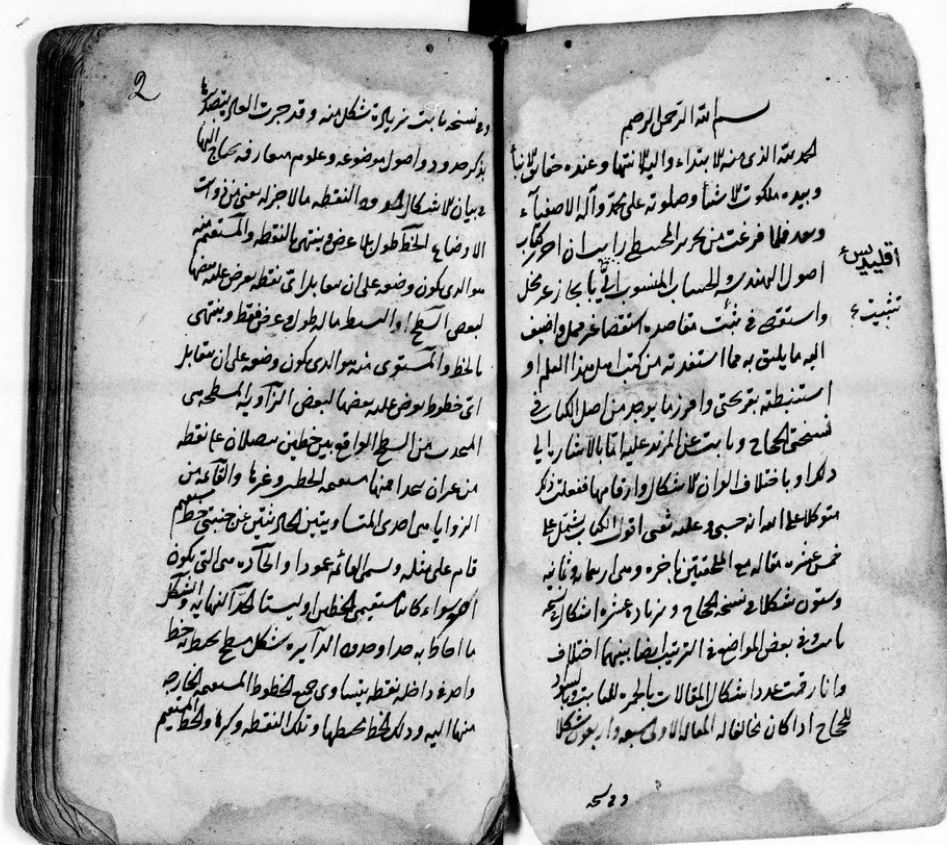 بسم الله الرحمن الرحيم
الحمد لله الذى منه الابتداء واليه الانتهاء وعنده حقائق الانبآ
وبيده ملكوت الاشيآ وصلوته على محمد وآله الاصفيآء
وبعد فلما فرغت من تحرير المجسطى رايت ان احرر كتاب
اصول الهندسة والحساب المنسوب الى بايجاز غير مخل
واستقصى فى تثبت مقاصده استقصاء غير ممل واضيف
اليه ما يليق به مما استفدته من كتب اهل هذا العلم او
استنبطته بقريحتى وافرز ما يوجد من اصل الكتاب فى
نسختى الحجاج وثابت عن المزيد عليه اما بالاشارة الى
ذلك او باختلاف الوان الاشكال وارقامها ففعلت ذلك
متوكلا على الله انه حسبى وعليه ثقتى اقول الكتاب يشتمل على
خمس عشرة مقاله مع الملحقتين باخره وهى اربعمايه وثمانيه
وستون شكلا فى نسخة الحجاج وبزيادة عشرة اشكال فى نسخة
ثابت وفى بعض المواضع فى الترتيب ايضا بينهما اختلاف
وانا رقمت عدد اشكال المقالات بالحمرة لثابت وبالسواد
للحجاج اذا كان مخالفا له المقالة الاولى سبعه واربعون شكلا
وفى نسخه
اقليدس
تثبيت
2
وفى نسخه ثابت بزيادة شكل منه وقد جرت العادة بتصديرها
بذكر حدود واصول موضوعه وعلوم متعارفه يحتاج اليها
فى بيان الاشكال الحدود النقطه ما لا جزء له يعنى من ذوات
الاوضاع الخط طول بلا عرض وينتهى بالنقطه والمستقيم منه
هو الذى يكون وضعه على ان يتقابل اى نقط يفرض عليه بعضها
لبعض السطح او البسيط ما له طول وعرض فقط وينتهى
بالخط والمستوى منه هو الذى يكون وضعه على ان يتقابل
اى خطوط يفرض عليه بعضها لبعض الزاوية المسطحه هى
المنحدب من السطح الواقع بين خطين يتصلان على نقطه
من غير ان يتحدا منها مستقيمة الخطين وغيرها والقائمه من
الزوايا هى احدى المتساويتين الحادثتين عن جنبتى خط مستقيم
قام على مثله ويسمى القائم عمودا والحادة هى التى يكون
اصغر سواء كانتا مستقيمى الخطين او ليستا الحد النهاية والشكل
ما احاط به حد او حدود الدايره شكل مسطح يحيط به خط
واحد فى داخله نقطه يتساوى جميع الخطوط المستقيمه الخارجه
منها اليه وذلك الخط محيطها وتلك النقطه مركزها والخط المستقيم